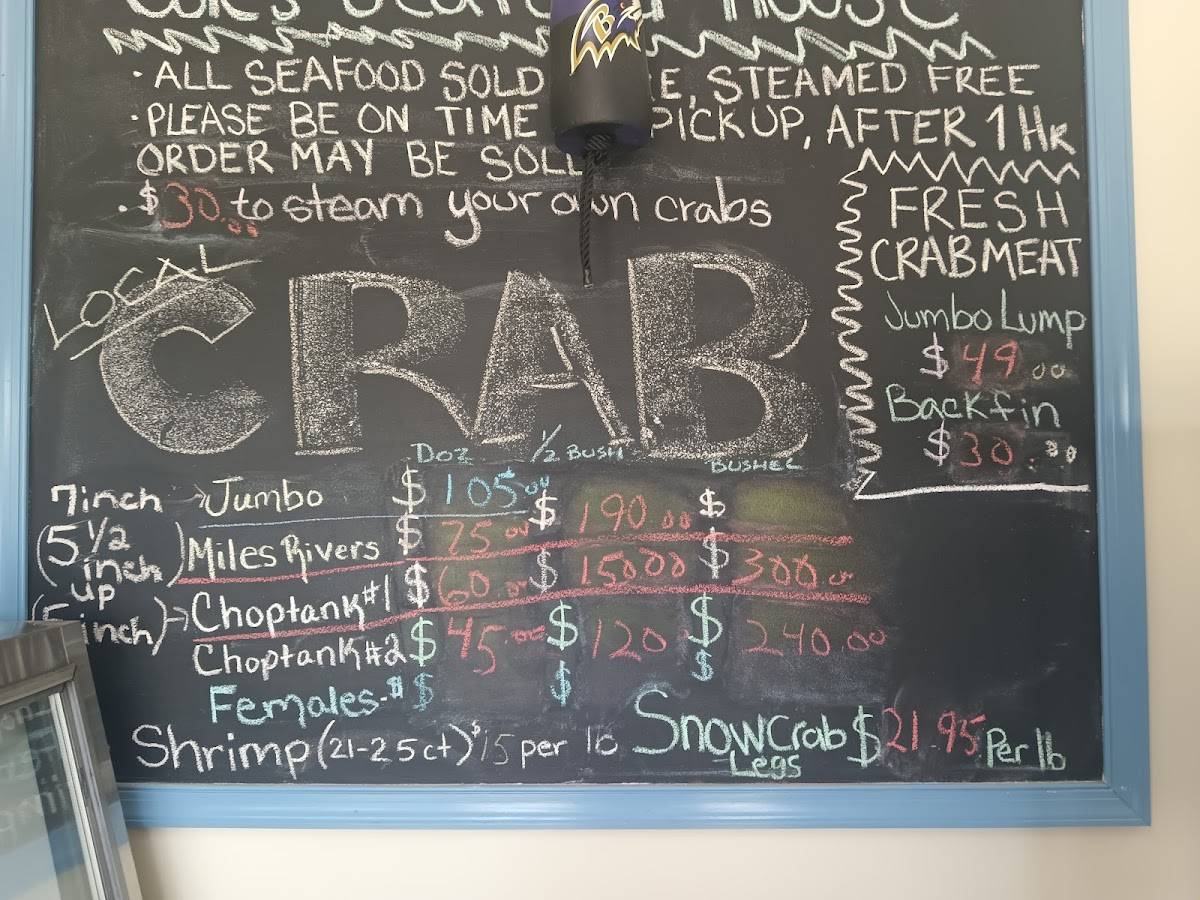 HOUSE
· ALL SEAFOOD SOLD STEAMED FREE
· PLEASE BE ON TIME PICK UP, AFTER 1 HR
ORDER MAY BE SOLD
· $30.00 to steam your own crabs
LOCAL
CRAB
FRESH
CRABMEAT
Jumbo Lump
$49.00
Backfin
$30.00
DOZ 1/2 BUSH BUSHEL
7inch → Jumbo $105.00 $190.00 $
(5 1/2 inch up) Miles Rivers $75.00 $150.00 $300.00
(5 inch) → Choptank #1 $60.00 $120 $240.00
Choptank #2 $45.00 $ $
Females - $ $
Shrimp (21-25ct) $15 per lb
Snowcrab Legs $21.95 Per lb